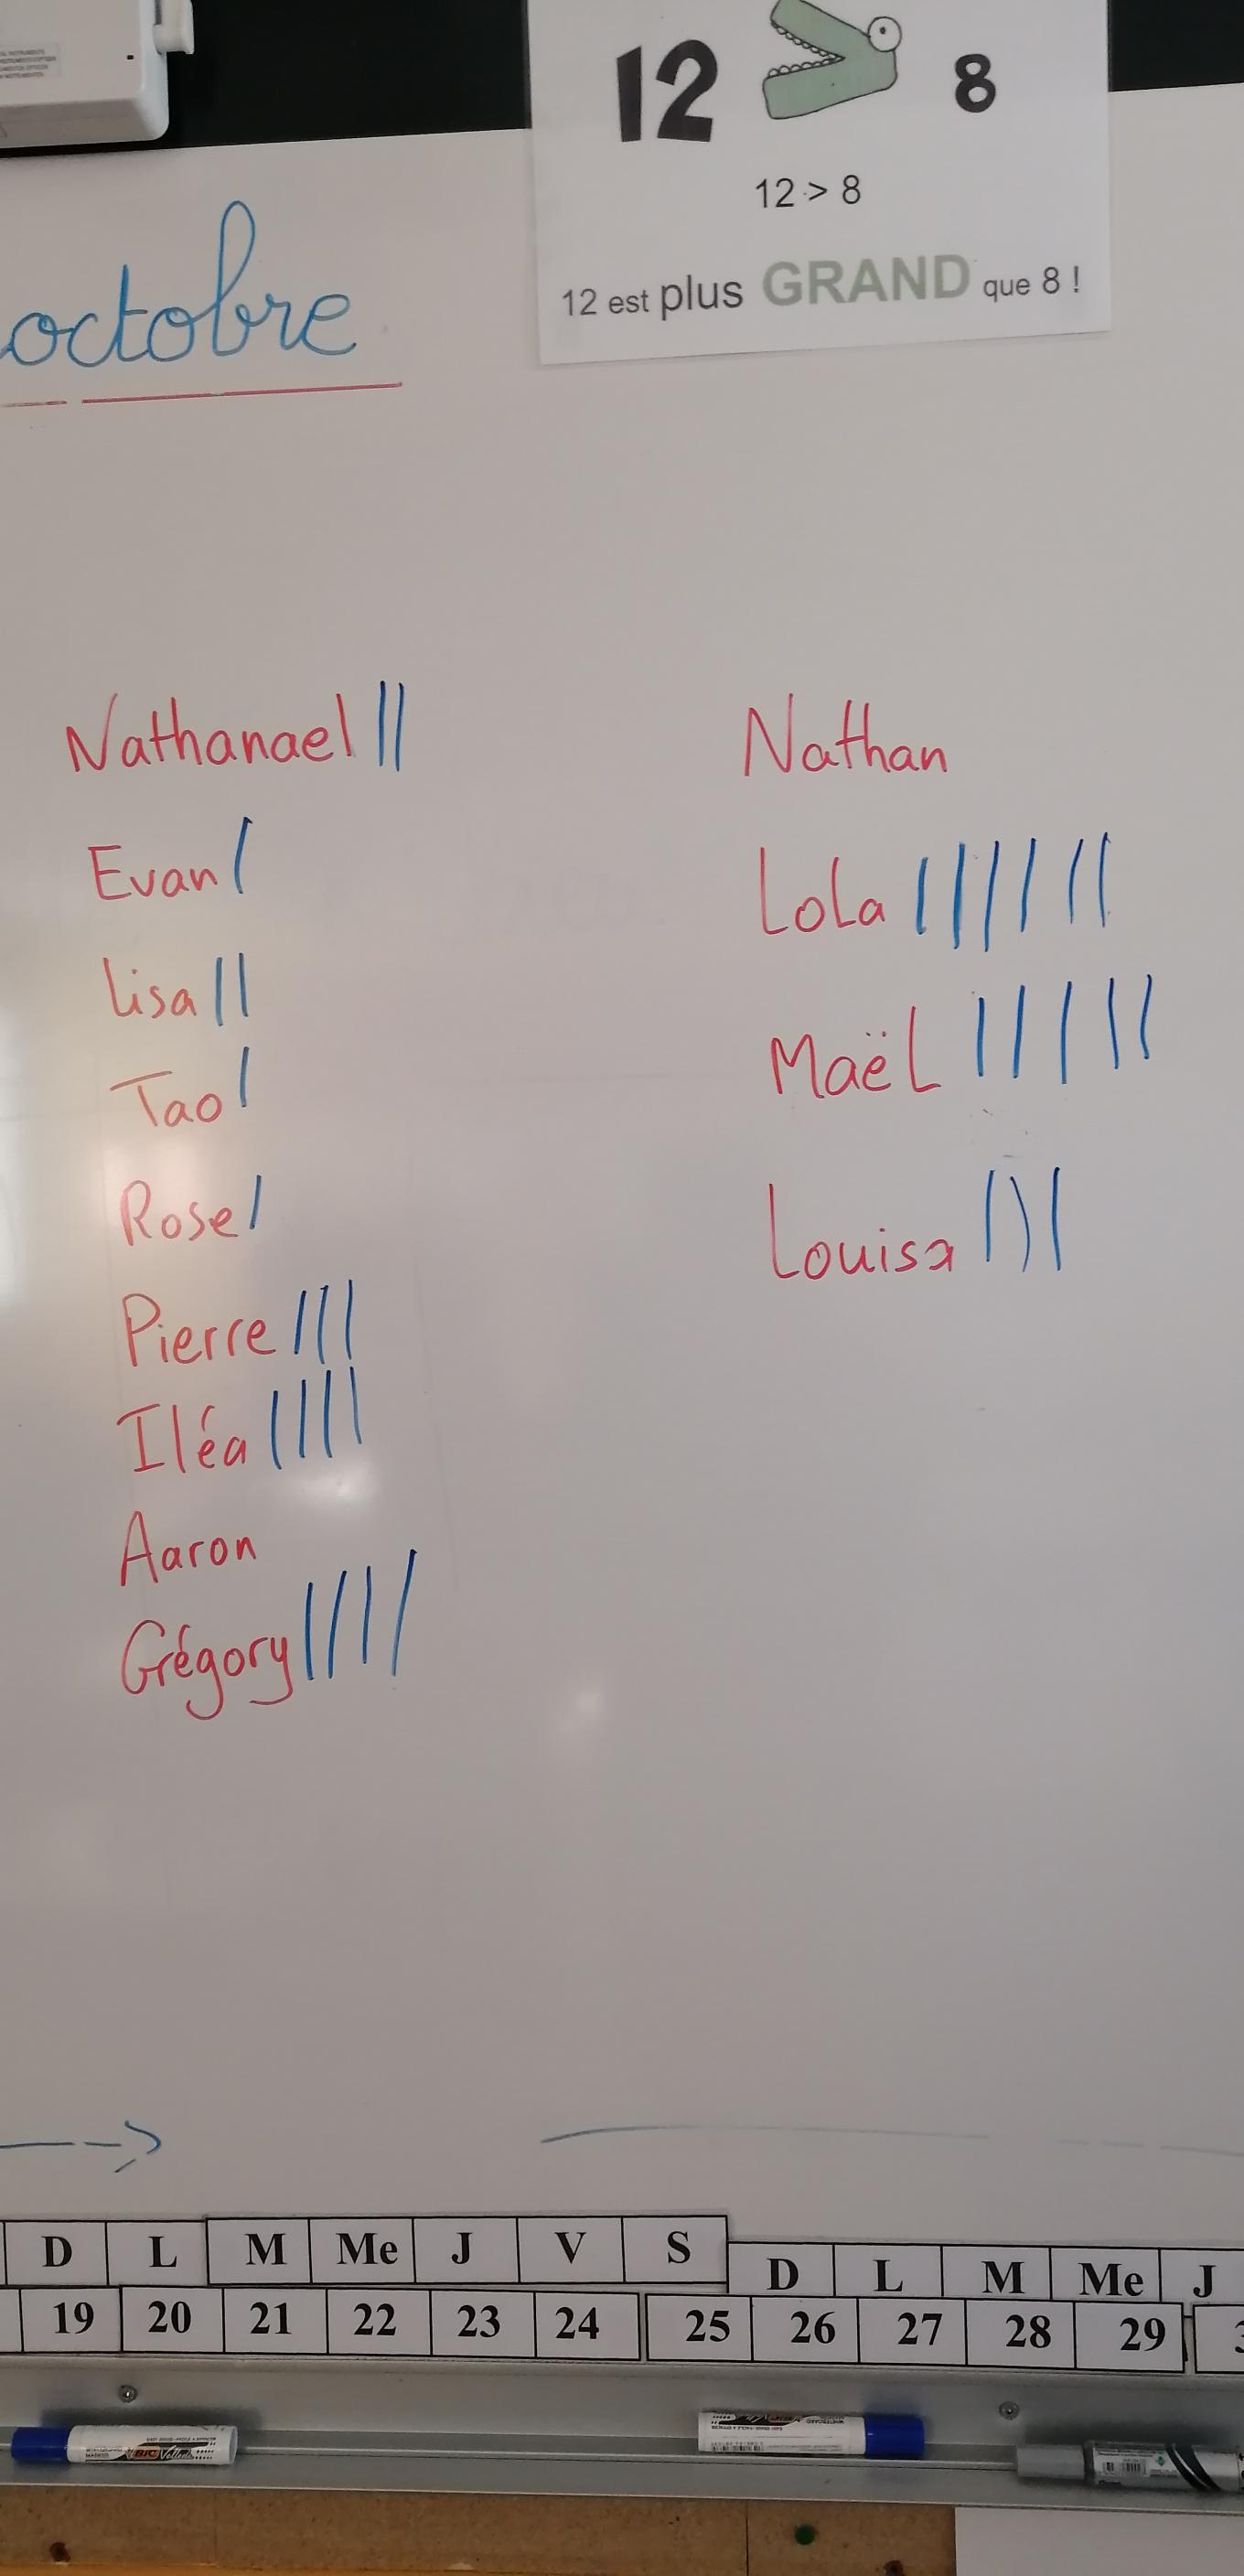 12 8
12 > 8
12 est plus GRAND que 8 !
octobre
Nathanael ||
Evan |
Lisa ||
Tao |
Rose |
Pierre |||
Iléa ||||
Aaron
Grégory ||||
Nathan
Lola ||||||
Maël |||||
Louisa |||
D L M Me J V S D L M Me J
19 20 21 22 23 24 25 26 27 28 29
BIC Velleda